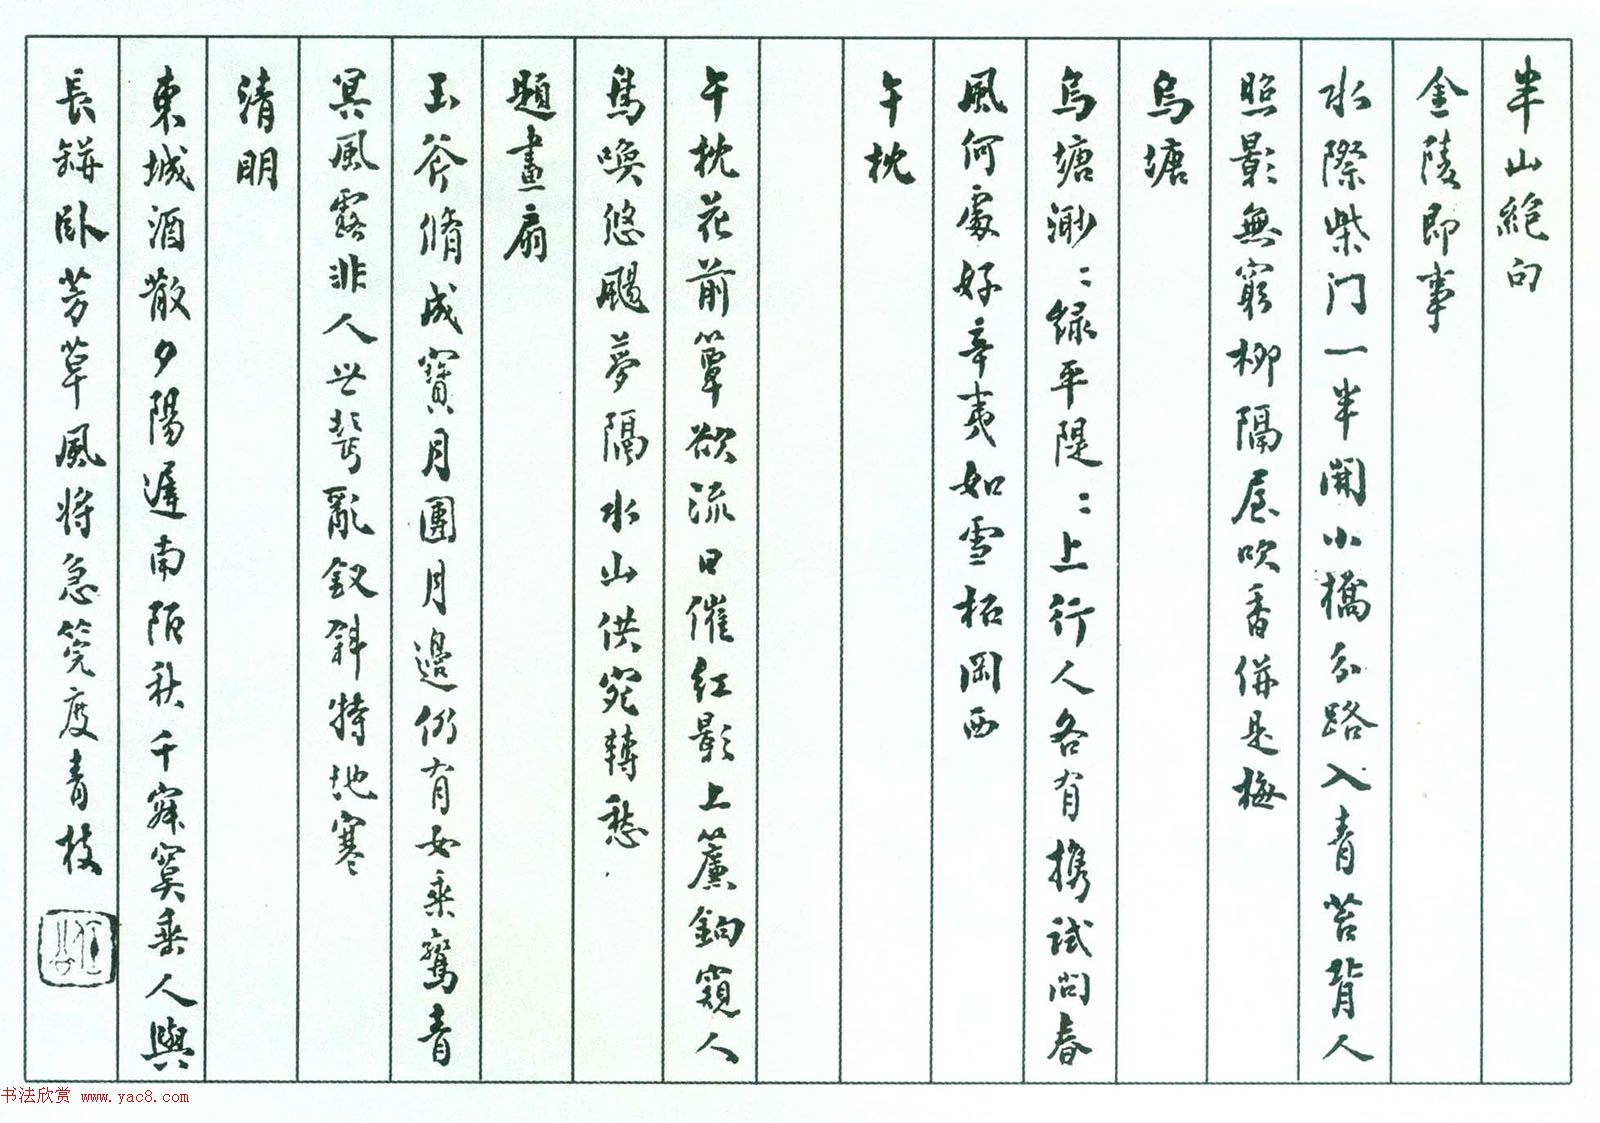 半山絶句
金陵即事
水際柴门一半開小橋分路入青苔背人
照影無窮柳隔屋吹香併是梅
烏塘
烏塘渺〻緑平隄〻上行人各有攜試問春
風何處好辛夷如雪柘岡西
午枕
午枕花前簟欲流日催紅影上簾鉤窺人
鳥喚悠颺夢隔水山供宛轉愁
題畫扇
玉斧脩成寶月團月邊仍有女乘鸞青
冥風露非人世鬢亂釵斜特地寒
清明
東城酒散夕陽遲南陌秋千寂寞垂人與
長缾卧芳草風將急筦度青枝
书法欣赏 www.yac8.com